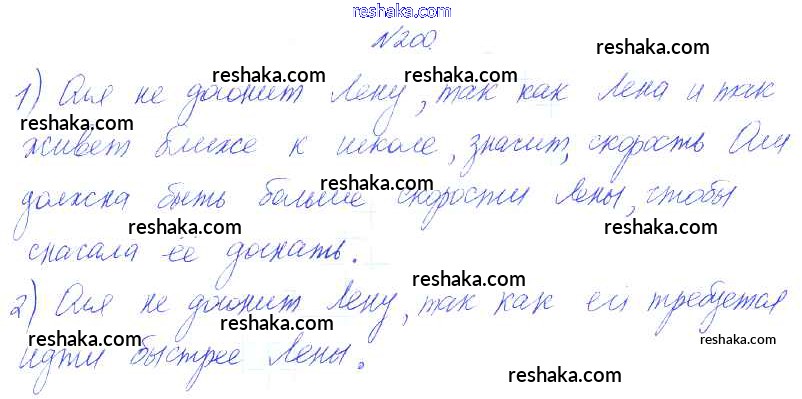 reshaka.com
№200. reshaka.com
reshaka.com reshaka.com
1) Оля не догонит Лену, так как Лена и так
reshaka.com reshaka.com
живет ближе к школе, значит, скорость Оли
reshaka.com
должна быть больше скорости Лены, чтобы
reshaka.com reshaka.com
сначала её догнать.
reshaka.com
2) Оля не догонит Лену, так как ей требуется
reshaka.com reshaka.com reshaka.com
идти быстрее Лены.
reshaka.com reshaka.com